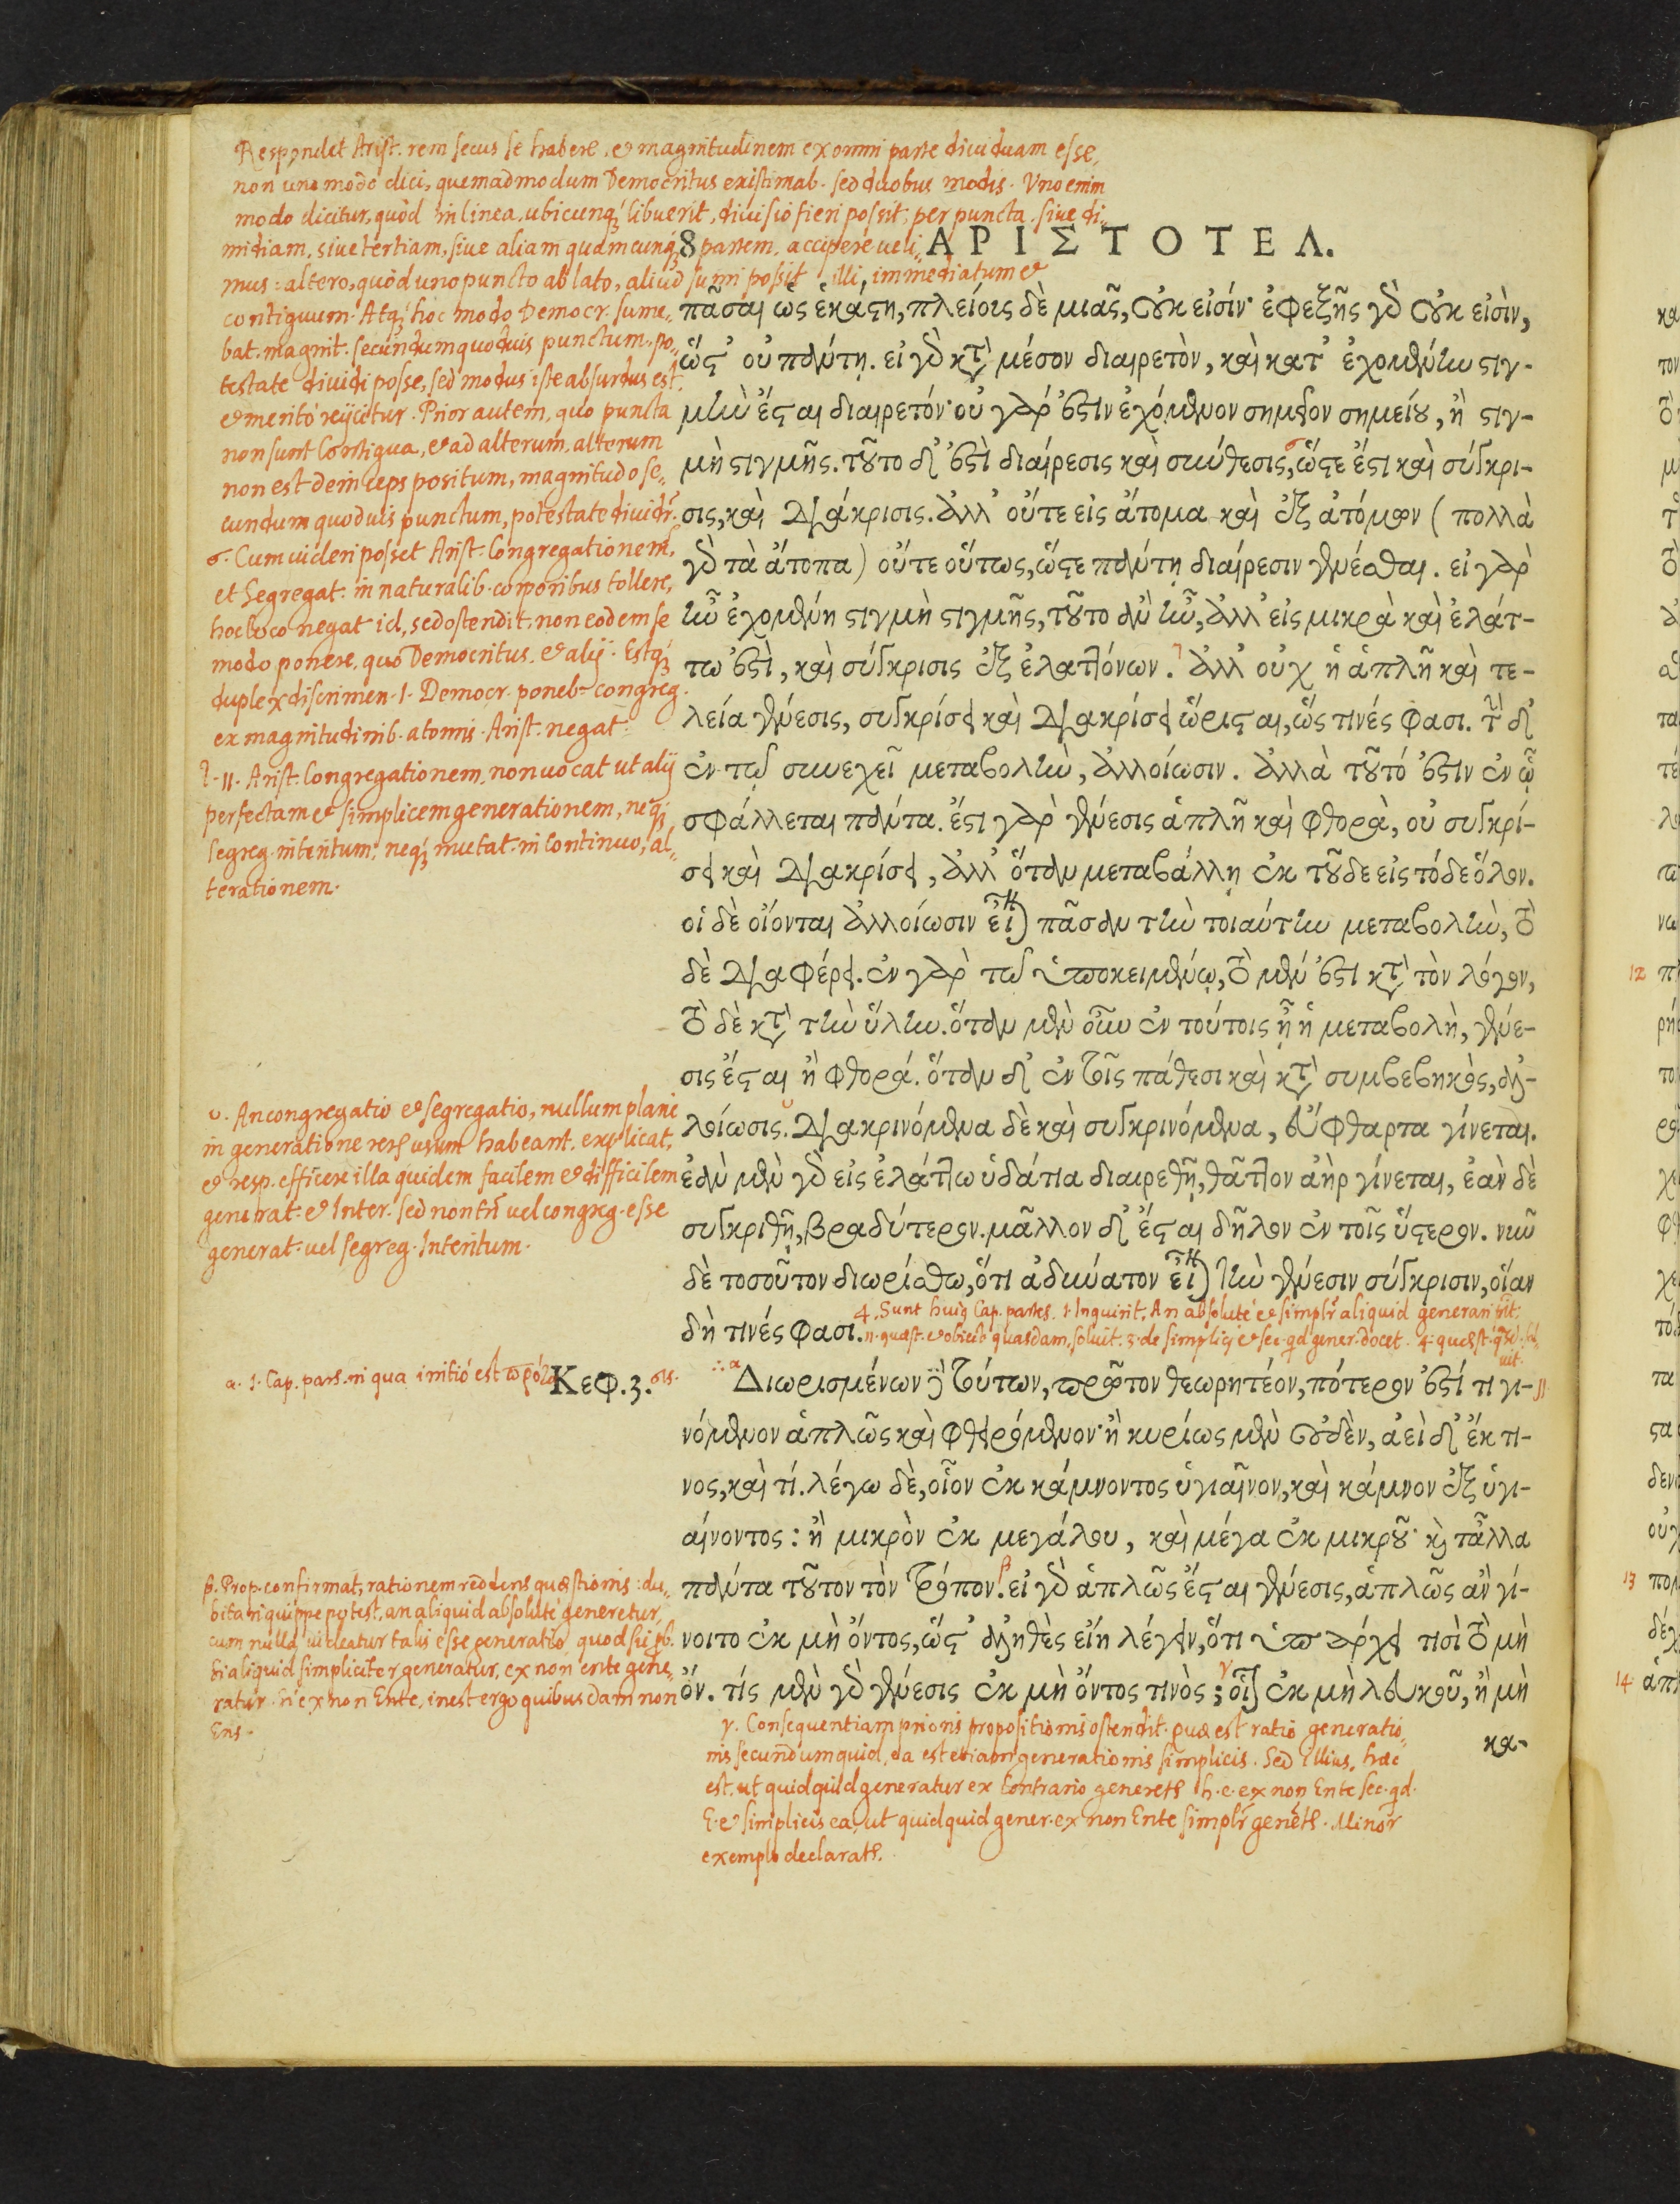 Respondet Arist. rem secus se habere, et magnitudinem ex omni parte diuiduam esse,
non uno modo dici, quemadmodum Democritus existimab. sed duobus modis. Uno enim
modo dicitur, quòd in linea, ubicunq; libuerit, diuisio fieri possit; per puncta, siue di„
midiam, siue tertiam, siue aliam quamcunq; partem accipere ueli„
mus: altero, quòd uno puncto ablato, aliud sumi possit illi, immediatum et
contiguum. Atq; hoc modo Democr. sume„
bat magnit. secundum quoduis punctum po„
testate diuidi posse, sed modus iste absurdus est,
et meritò reijcitur. Prior autem, quo puncta
non sunt Contigua, et ad alterum, alterum
non est deinceps positum, magnitudo se„
cundum quoduis punctum, potestate diuidr.
σ. Cum uideri posset Arist. Congregationem,
et Segregat. in naturalib. corporibus tollere,
hoc loco negat id, sed ostendit, non eodem se
modo ponere, quo Democritus, et alij. Estq;
duplex discrimen. I. Democr. poneb. congreg.
ex magnitudinib. atomis. Arist. negat.
τ. II. Arist. Congregationem, non uocat ut alij
perfectam et simplicem generationem, neq;
segreg. interitum; neq; mutat. in Continuo, al„
terationem.
υ. An congregatio et segregatio, nullum plane
in generatione rers usum habeant, explicat,
et resp. efficere illa quidem facilem et difficilem
generat. et Inter. sed non tn̄ uel congreg. esse
generat. uel segreg. Interitum.
α. I. Cap. pars. in qua initiò est πρότα
β. Prop. confirmat, rationem reddens quæstionis: du„
bitari quippe potest, an aliquid absolutè generetur,
cum nulla uideatur talis esse generatio quod sic pb.
Si aliquid simpliciter generatur, ex non ente gene„
ratur. Si ex non Ente, inest ergo quibusdam non
Ens.
8 ΑΡΙΣΤΟΤΕΛ.
πᾶσαι ὡς ἑκάστη, πλείοις δὲ μιᾶς, οὐκ εἰσίν· ἐφεξῆς γὸ οὐκ εἰσὶν,
ὥστ' οὐ πάντῃ. εἰ γὸ κτ' μέσον διαιρετὸν, καὶ κατ' ἐχομένην στιγ-
μὴν ἔσται διαιρετόν· οὐ γάρ ἐστιν ἐχόμενον σημεῖον σημείου, ἢ στιγ-
μὴ στιγμῆς. τοῦτο δ' ἐστὶ διαίρεσις καὶ σύνθεσις, ὥστε ἔστι καὶ σύγκρι-
σις, καὶ διάκρισις. ἀλλ' οὔτε εἰς ἄτομα καὶ ἐξ ἀτόμων (πολλὰ
γὸ τὰ ἄτοπα) οὔτε οὕτως, ὥστε πάντῃ διαίρεσιν γενέσθαι. εἰ γὰρ
ἦν ἐχομένη στιγμὴ στιγμῆς, τοῦτο ἂν ἦν, ἀλλ' εἰς μικρὰ καὶ ἐλάτ-
τω ἐστὶ, καὶ σύγκρισις ἐξ ἐλαττόνων. ἀλλ' οὐχ ἡ ἁπλῆ καὶ τε-
λεία γένεσις, συγκρίσει καὶ διακρίσει ὥρισται, ὥς τινές φασι. τὴν δ'
ἐν τῷ συνεχεῖ μεταβολὴν, ἀλλοίωσιν. ἀλλὰ τοῦτό ἐστιν ἐν ᾧ
σφάλλεται πάντα. ἔστι γὰρ γένεσις ἁπλῆ καὶ φθορὰ, οὐ συγκρί-
σει καὶ διακρίσει, ἀλλ' ὅταν μεταβάλλῃ ἐκ τοῦδε εἰς τόδε ὅλον.
οἱ δὲ οἴονται ἀλλοίωσιν εἶναι πᾶσαν τὴν τοιαύτην μεταβολὴν, τὸ
δὲ διαφέρει. ἐν γὰρ τῷ ὑποκειμένῳ, τὸ μέν ἐστι κτ' τὸν λόγον,
τὸ δὲ κτ' τὴν ὕλην. ὅταν μὲν οὖν ἐν τούτοις ᾖ ἡ μεταβολὴ, γένε-
σις ἔσται ἢ φθορά. ὅταν δ' ἐν τοῖς πάθεσι καὶ κτ' συμβεβηκὸς, ἀλ-
λοίωσις. διακρινόμενα δὲ καὶ συγκρινόμενα, εὔφθαρτα γίνεται.
ἐὰν μὲν γὸ εἰς ἐλάττω ὑδάτια διαιρεθῇ, θᾶττον ἀὴρ γίνεται, ἐὰν δὲ
συγκριθῇ, βραδύτερον. μᾶλλον δ' ἔσται δῆλον ἐν τοῖς ὕστερον. νῦν
δὲ τοσοῦτον διωρίσθω, ὅτι ἀδύνατον εἶναι τὴν γένεσιν σύγκρισιν, οἵαν
δή τινές φασι.
4. Sunt huiq Cap. partes. 1. Inquirit, An absolutè et simplr̄ aliquid generari sit,
II. quæst. et obiectō quasdam, soluit. 3. de simplicj et sec. qd gener. docet. 4. quæst. qsd. sol„
uit.
Κεφ. 3. σις.
Διωρισμένων δὲ τούτων, πρῶτον θεωρητέον, πότερον ἐστί τι γι- II
νόμενον ἁπλῶς καὶ φθειρόμενον· ἢ κυρίως μὲν οὐδὲν, ἀεὶ δ' ἔκ τι-
νος, καὶ τί. λέγω δὲ, οἷον ἐκ κάμνοντος ὑγιαῖνον, καὶ κάμνον ἐξ ὑγι-
αίνοντος: ἢ μικρὸν ἐκ μεγάλου, καὶ μέγα ἐκ μικροῦ· κὶ τἆλλα
πάντα τοῦτον τὸν τρόπον. εἰ γὸ ἁπλῶς ἔσται γένεσις, ἁπλῶς ἂν γί-
νοιτο ἐκ μὴ ὄντος, ὥστ' ἀληθὲς εἴη λέγειν, ὅτι ὑπάρχει τισὶ τὸ μὴ
ὄν. τίς μὲν γὸ γένεσις ἐκ μὴ ὄντος τινὸς; οἷον ἐκ μὴ λευκοῦ, ἢ μὴ
κα-
γ. Consequentiam prioris propositionis ostendit. quæ est ratio generatio„
nis secundum quid, ea est etiam generationis simplicis. Sed illius, hæc
est, ut quidquid generatur ex Contrario generetr h. e. ex non Ente sec. qd.
E. et simplicis ea, ut quidquid gener. ex non Ente simplr̄ generetr. Minor
exemplo declaratr.
12
13
14